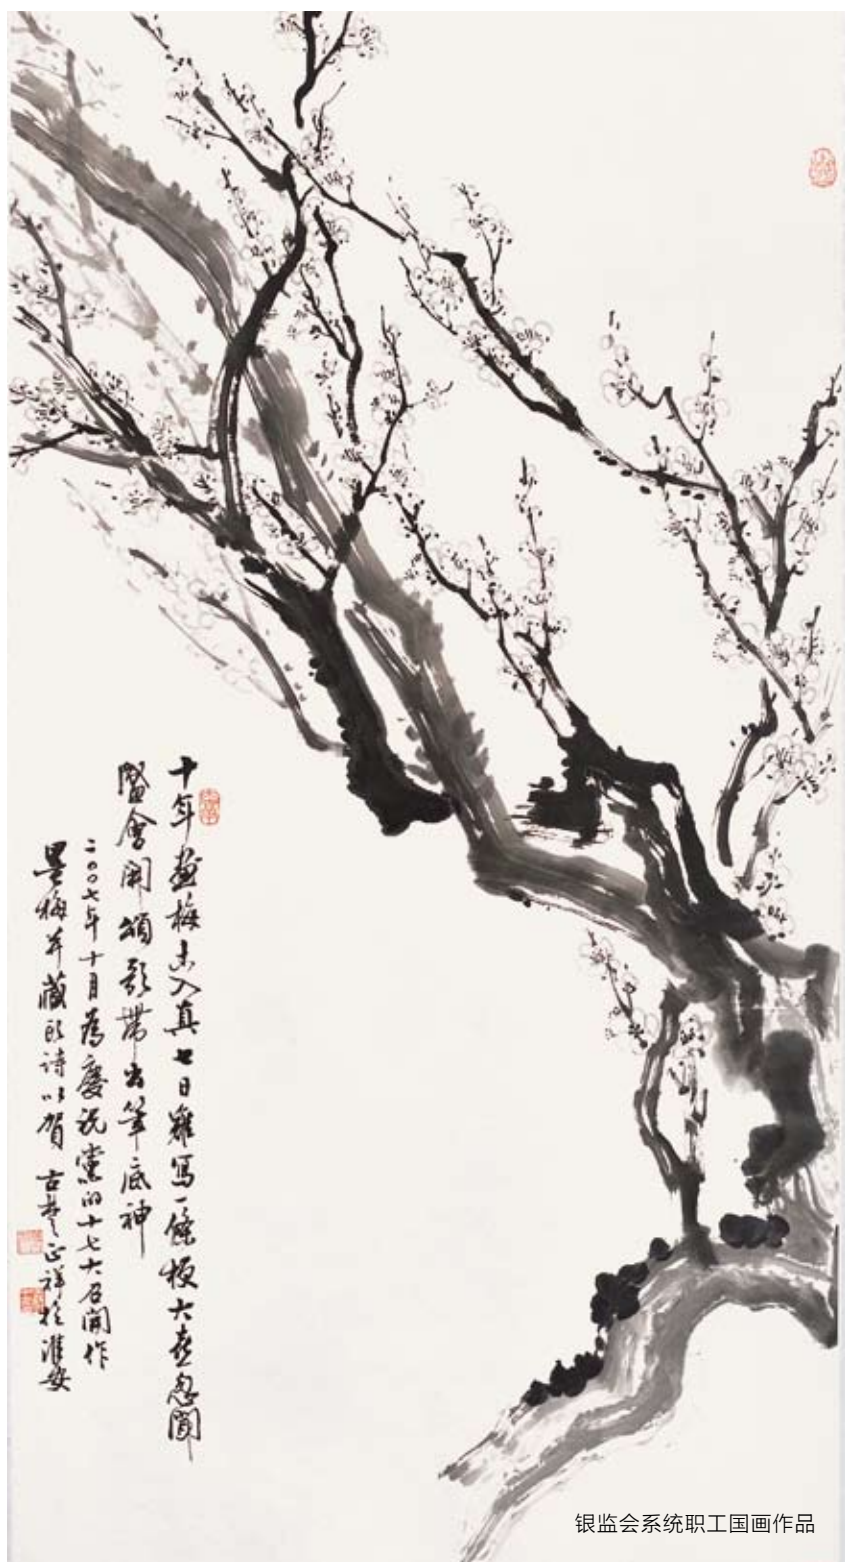 十年畫梅未入真七日難寫一條梗大喜忽聞
盛會開頌歌帶出筆底神
二〇〇七年十月為慶祝黨的十七大召開作
墨梅并藏头詩以賀 古楚正祥於淮安
银监会系统职工国画作品